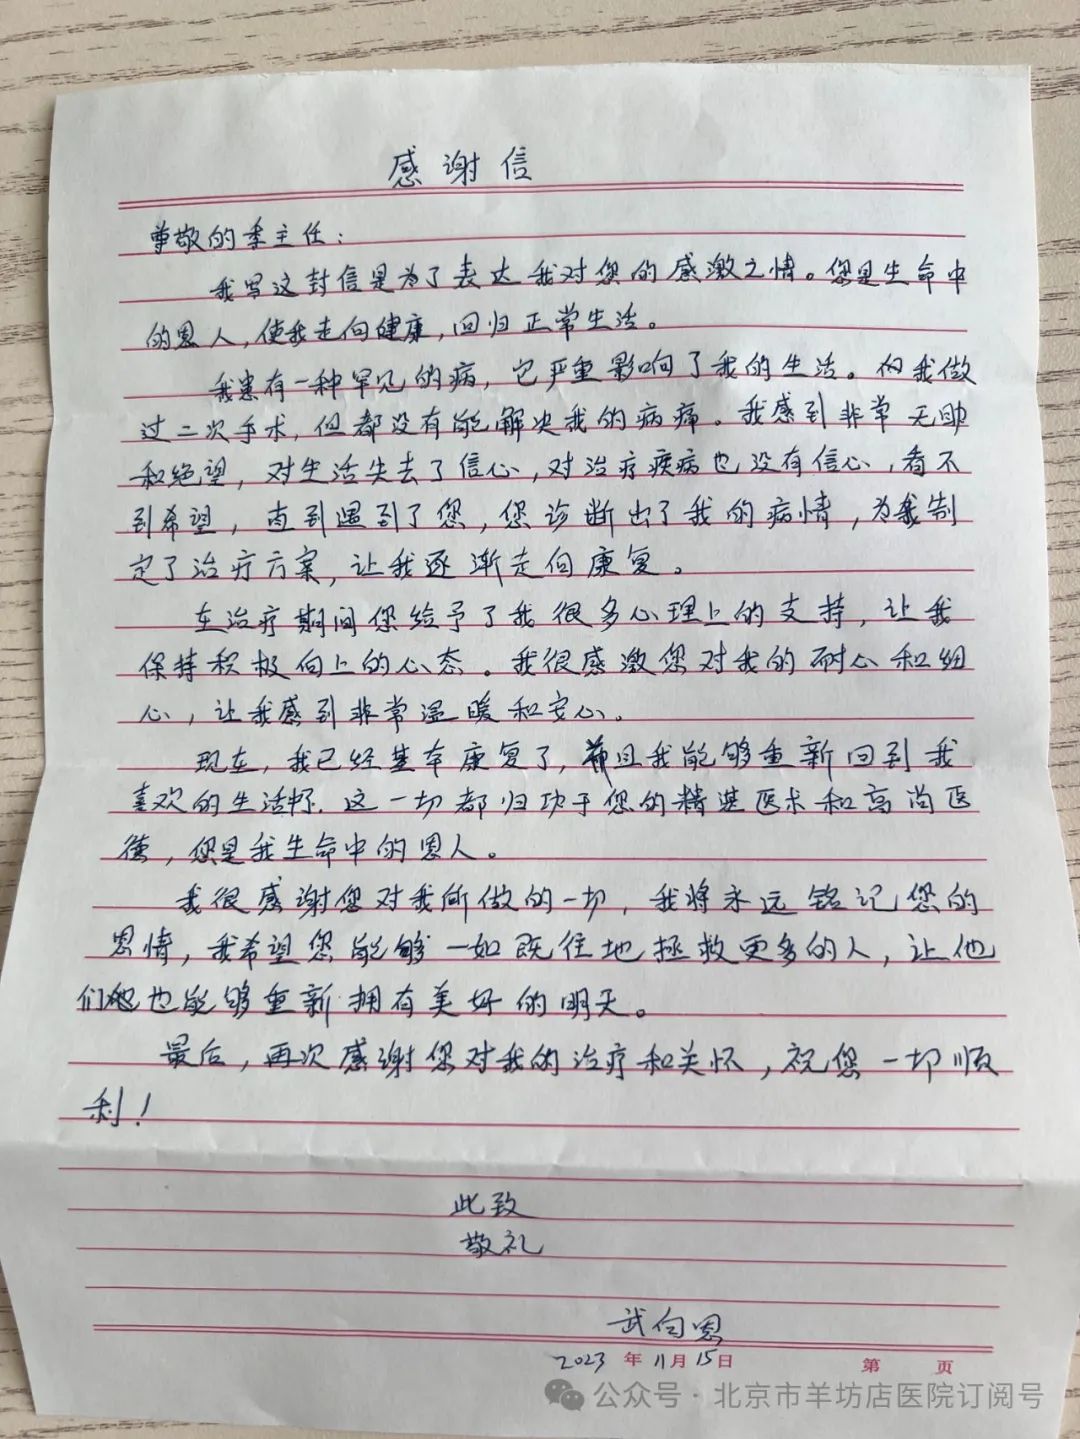 感谢信
尊敬的季主任：
我写这封信是为了表达我对您的感激之情。您是生命中
的恩人，使我走向健康，回归正常生活。
我患有一种罕见的病，它严重影响了我的生活。为我做
过二次手术，但都没有能解决我的病痛。我感到非常无助
和绝望，对生活失去了信心，对治疗疾病也没有信心，看不
到希望，直到遇到了您，您诊断出了我的病情，为我制
定了治疗方案，让我逐渐走向康复。
在治疗期间您给予了我很多心理上的支持，让我
保持积极向上的心态。我很感激您对我的耐心和细
心，让我感到非常温暖和安心。
现在，我已经基本康复了，并且我能够重新回到我
喜欢的生活中，这一切都归功于您的精湛医术和高尚医
德，您是我生命中的恩人。
我很感谢您对我所做的一切，我将永远铭记您的
恩情，我希望您能够一如既往地拯救更多的人，让他
们也能够重新拥有美好的明天。
最后，再次感谢您对我的治疗和关怀，祝您一切顺
利！
此致
敬礼
武向恩
2023年11月15日 第 页
公众号·北京市羊坊店医院订阅号